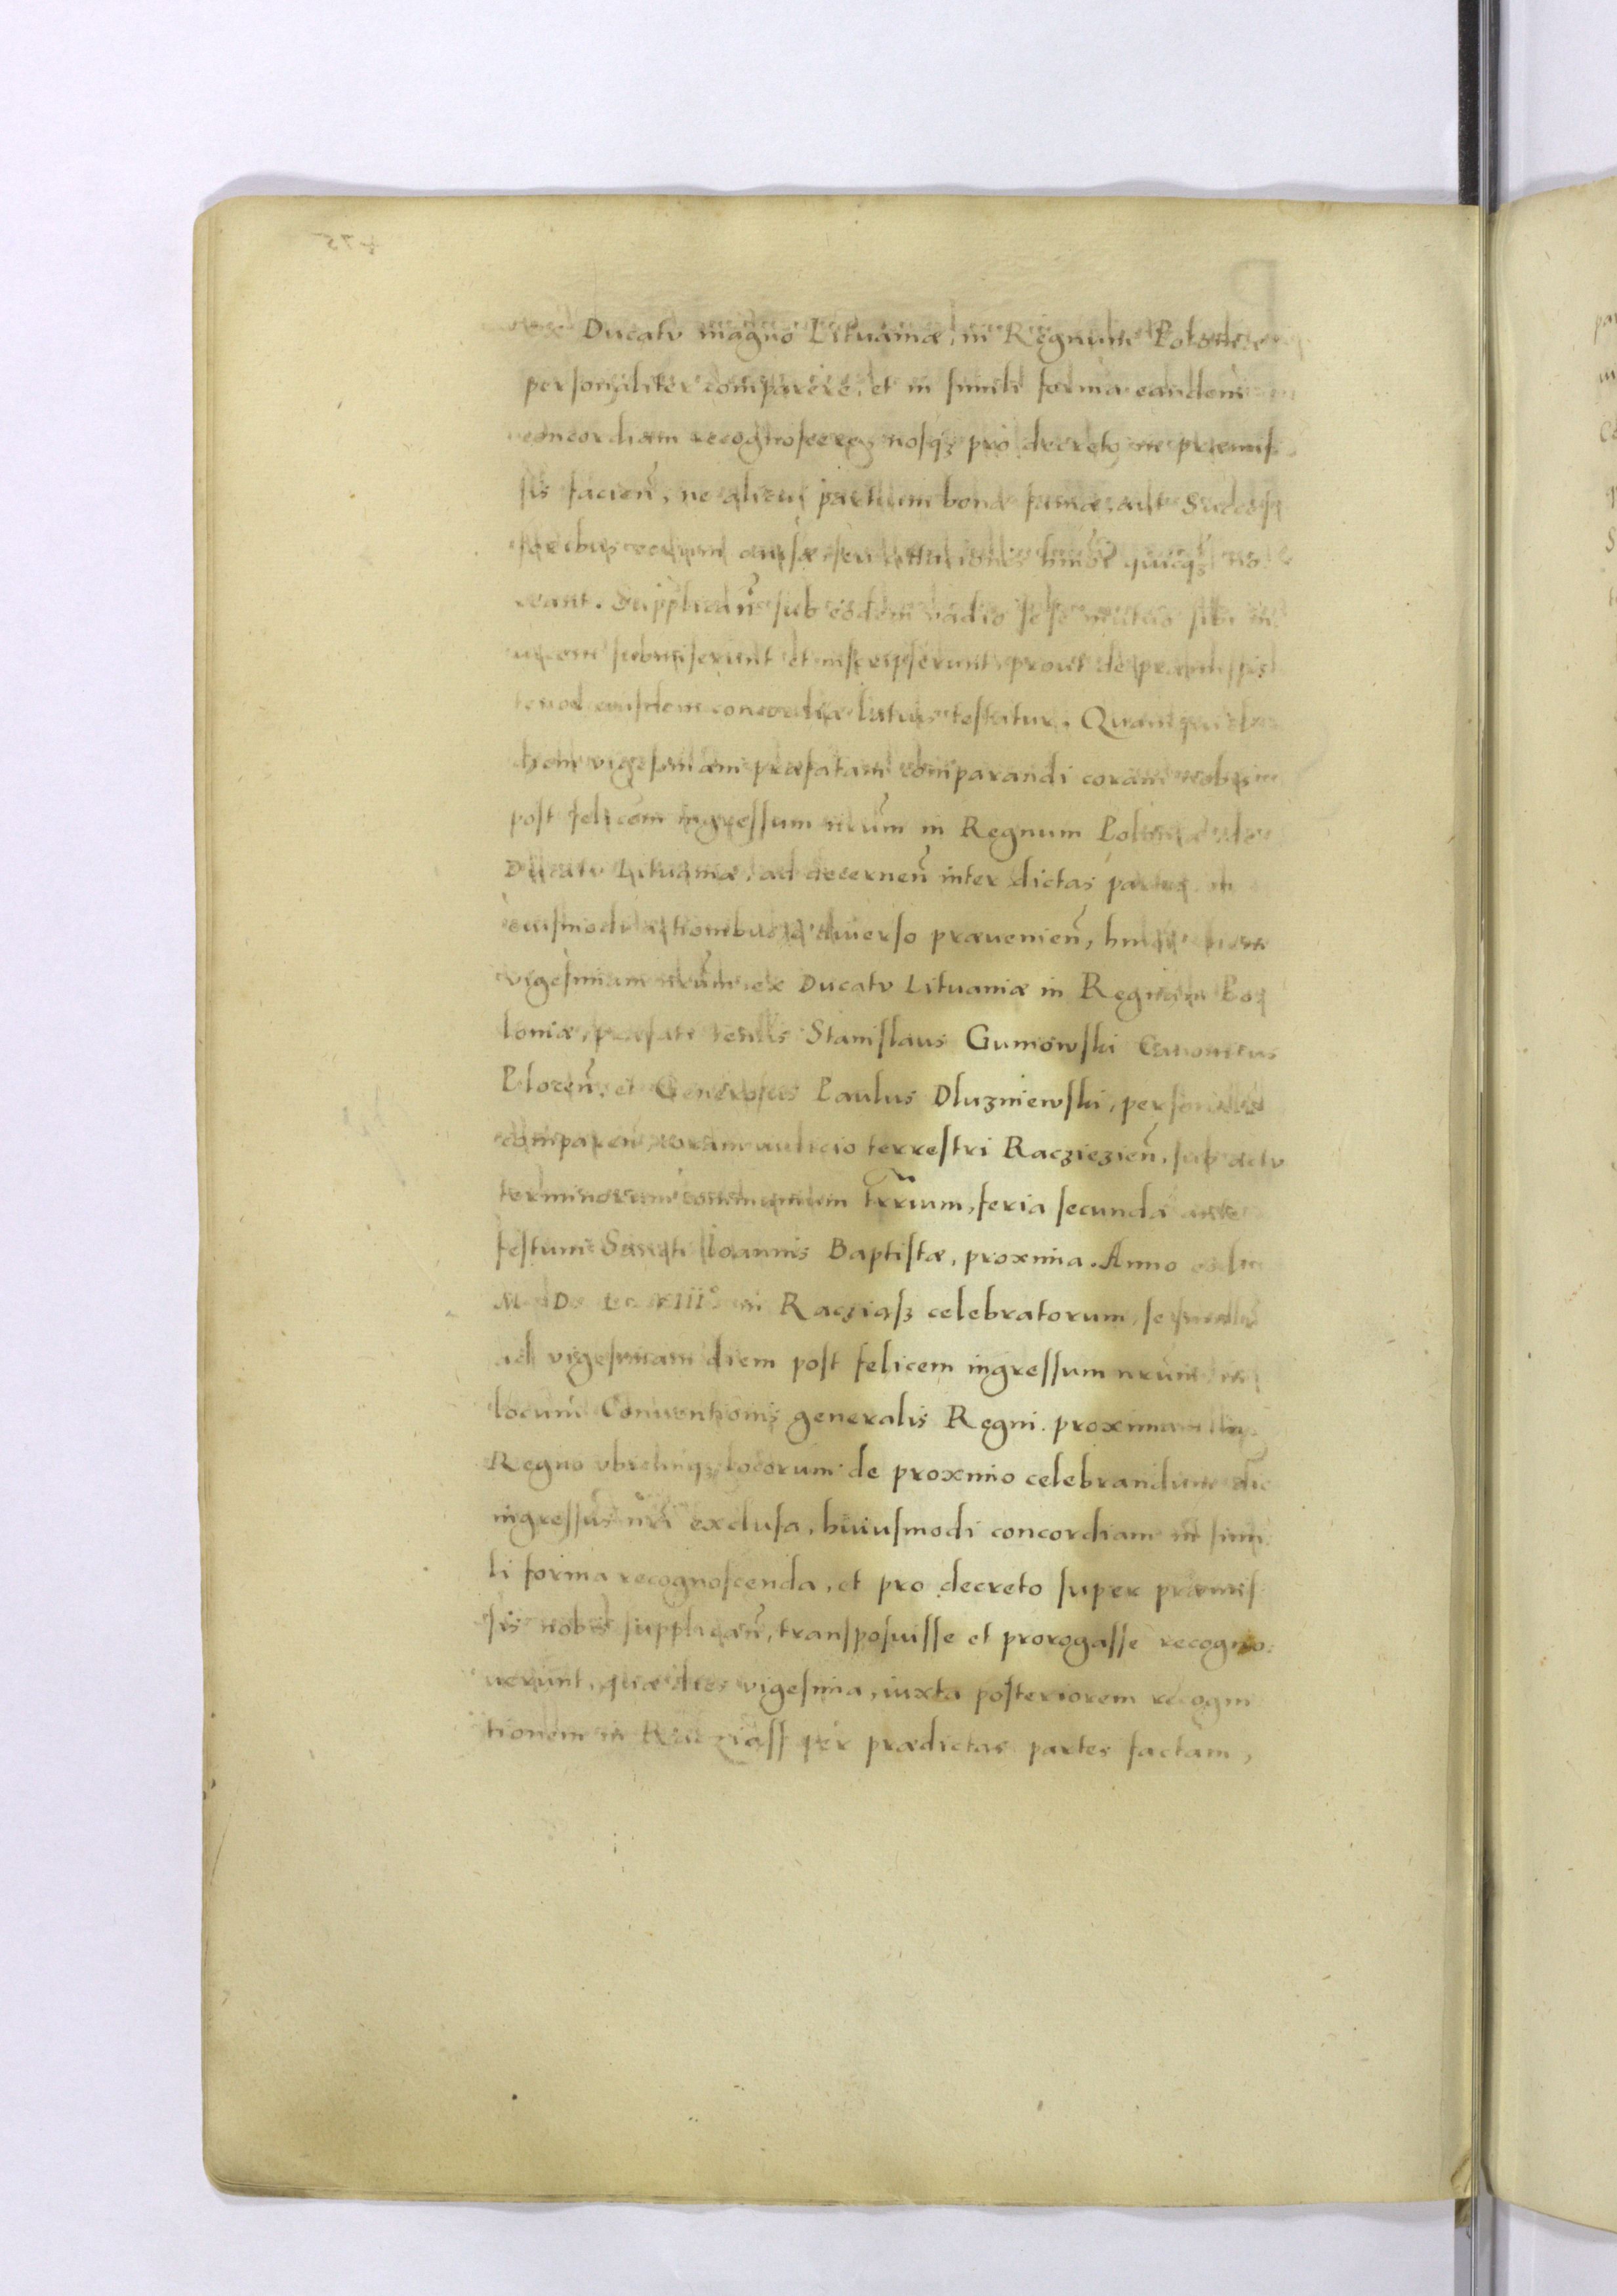 ex Ducatu magno Lituaniæ, in Regnum Poloniæ
personaliter comparere, et in simili forma eandem
concordiam recognoscere, nosq3 pro decreto in præmis
sis facien̄, ne alicui partium bonæ famæ, aut Succes
soribus eorum causæ seu actiones hmōi quicq3 no
ceant. Supplican̄ sub eodem vadio sese mutuo sibi in
uicem submiserunt et inscripserunt, prout de præmissis
tenor eiusdem concordiæ latius testatur. Quam
diem vigesimam præfatam comparandi coram nobis
post felicem ingressum nr̄um in Regnum Poloniæ de
Ducatu Lituaniæ, ad decernen̄ inter dictas partes in
eiusmodi actionibus e diuerso præuenien̄,
vigesimam nr̄um ex Ducatu Lituaniæ in Regnum Po
loniæ, præfati Stanislaus Gumowski Canonicus
Plocen̄, et Generosus Paulus Dluzniewski, personaliter
comparen̄ coram iudicio terrestri Racziezien̄, sub actu
terminorum communium trr̄ium, feria secunda ante
festum Sancti Ioannis Baptistæ, proxima. Anno
M. D. in Racziąsz celebratorum, se
ad vigesimam diem post felicem ingressum nrum in
locum Conuentionis generalis Regni. proximam in
Regno vbicunq3 locorum de proximo celebrandum die
ingressus nr̄i exclusa, huiusmodi concordiam in simi
li forma recognoscenda, et pro decreto super præmis
sis nobis supplican̄, transposuisse et prorogasse recogno:
uerunt, quæ dies vigesima, iuxta posteriorem recogni
tionem in Racziąss per prædictas partes factam,